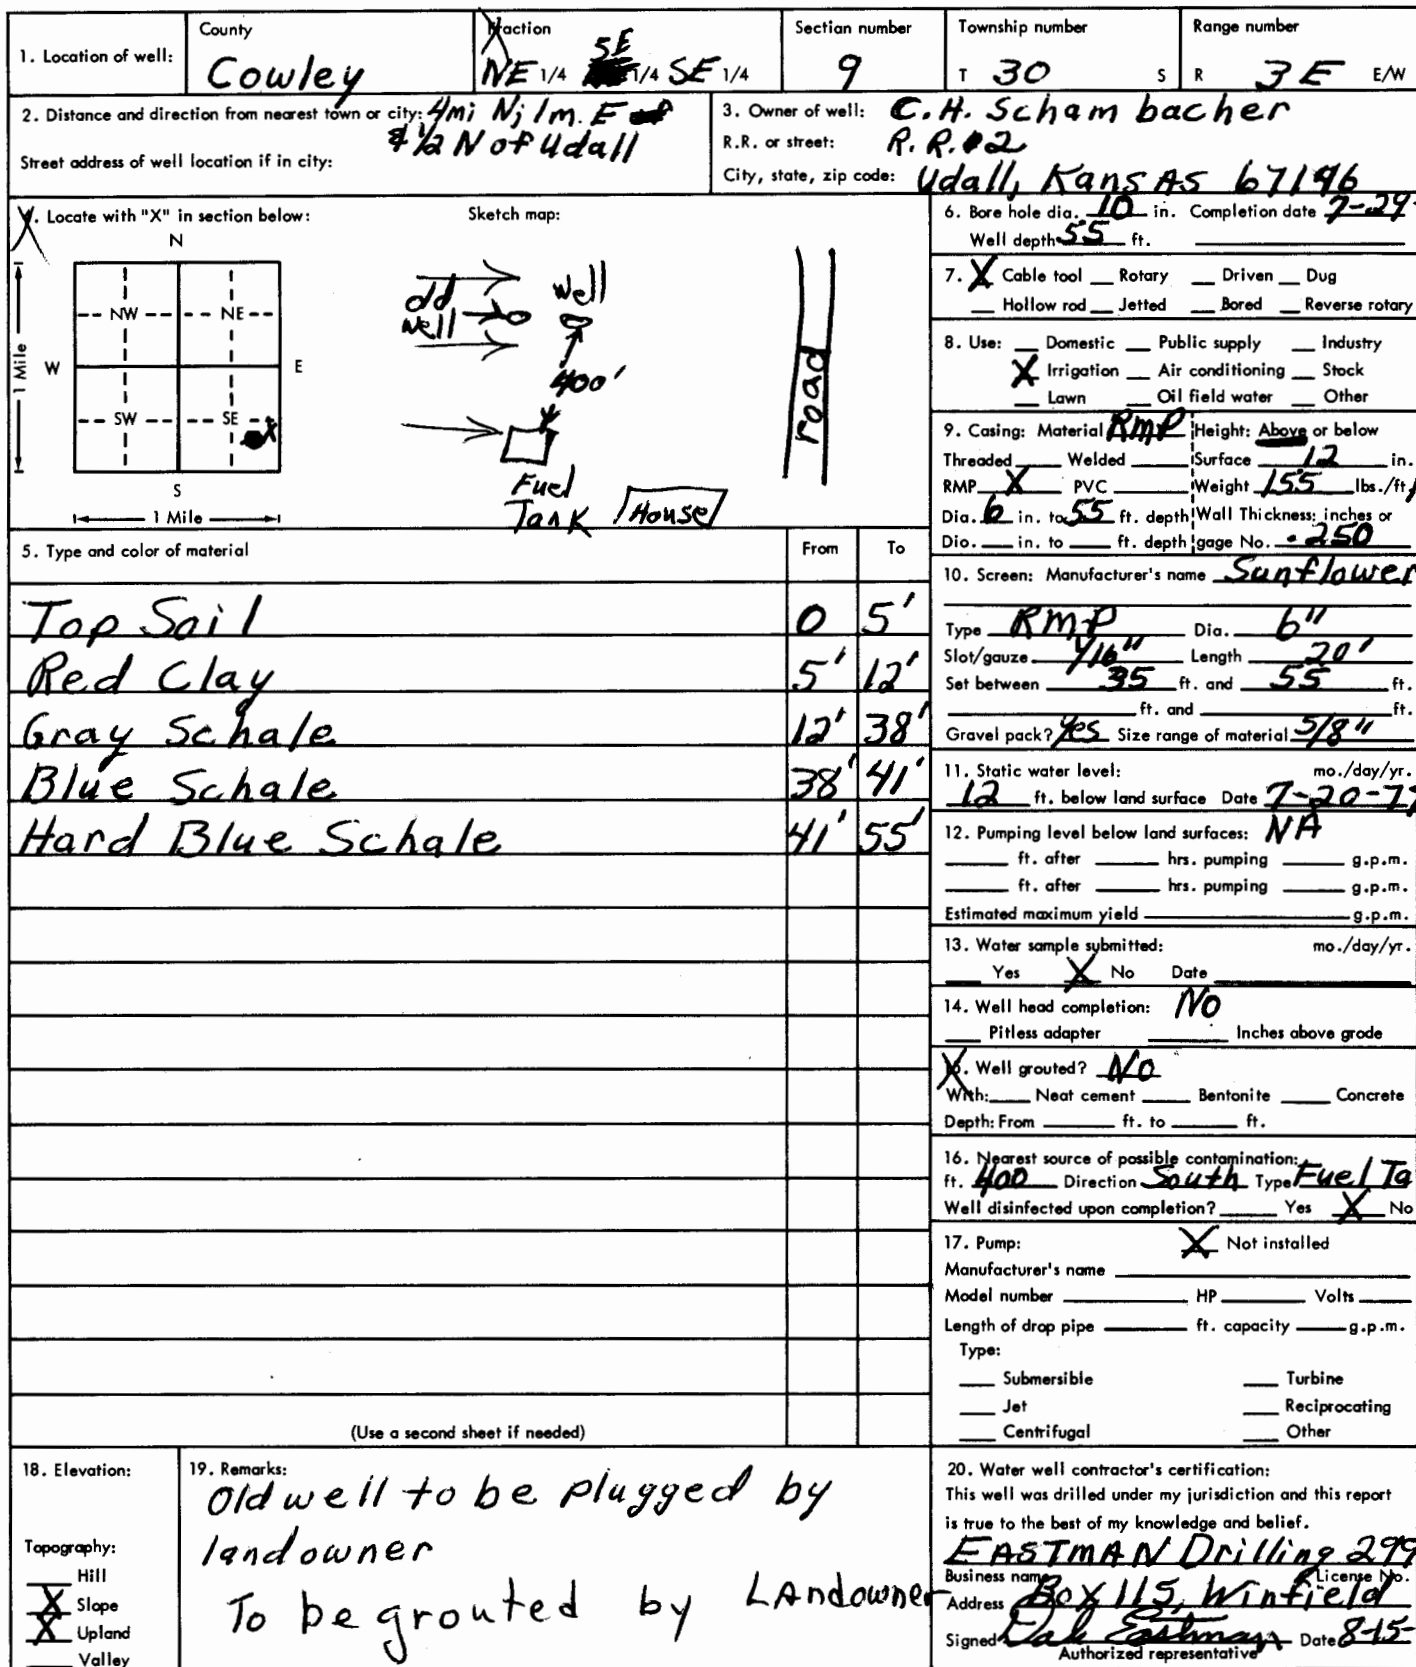 1. Location of well:
County
Cowley
Fraction
NE 1/4 SE 1/4 SE 1/4
Section number
9
Township number
T 30 S
Range number
R 3E E/W
2. Distance and direction from nearest town or city: 4mi N; 1m. E
& 1/2 N of Udall
Street address of well location if in city:
3. Owner of well: C.H. Scham bacher
R.R. or street: R.R.#2
City, state, zip code: Udall, KansAs 67146
4. Locate with "X" in section below:
N
NW NE
W E
SW SE X
S
1 Mile
1 Mile
Sketch map:
old well
well
400'
Fuel Tank
House
road
5. Type and color of material From To
Top Soil 0 5'
Red Clay 5' 12'
Gray Schale 12' 38'
Blue Schale 38' 41'
Hard Blue Schale 41' 55'
(Use a second sheet if needed)
6. Bore hole dia. 10 in. Completion date 7-29-
Well depth 55 ft.
7. X Cable tool __ Rotary __ Driven __ Dug
__ Hollow rod __ Jetted __ Bored __ Reverse rotary
8. Use: __ Domestic __ Public supply __ Industry
X Irrigation __ Air conditioning __ Stock
__ Lawn __ Oil field water __ Other
9. Casing: Material RMP Height: Above or below
Threaded __ Welded __ Surface 12 in.
RMP X PVC __ Weight 155 lbs./ft.
Dia. 6 in. to 55 ft. depth Wall Thickness: inches or
Dio. __ in. to __ ft. depth gage No. .250
10. Screen: Manufacturer's name Sunflower
Type RMP Dia. 6"
Slot/gauze 1/16" Length 20'
Set between 35 ft. and 55 ft.
__ ft. and __ ft.
Gravel pack? Yes Size range of material 5/8"
11. Static water level: mo./day/yr.
12 ft. below land surface Date 7-20-77
12. Pumping level below land surfaces: NA
__ ft. after __ hrs. pumping __ g.p.m.
__ ft. after __ hrs. pumping __ g.p.m.
Estimated maximum yield __ g.p.m.
13. Water sample submitted: mo./day/yr.
__ Yes X No Date __
14. Well head completion: NO
__ Pitless adapter __ Inches above grade
15. Well grouted? No
With: __ Neat cement __ Bentonite __ Concrete
Depth: From __ ft. to __ ft.
16. Nearest source of possible contamination:
ft. 400 Direction South Type Fuel Ta
Well disinfected upon completion? __ Yes X No
17. Pump: X Not installed
Manufacturer's name __
Model number __ HP __ Volts __
Length of drop pipe __ ft. capacity __ g.p.m.
Type:
__ Submersible __ Turbine
__ Jet __ Reciprocating
__ Centrifugal __ Other
18. Elevation:
Topography:
__ Hill
X Slope
X Upland
__ Valley
19. Remarks:
Old well to be plugged by
landowner
To be grouted by LAndowner
20. Water well contractor's certification:
This well was drilled under my jurisdiction and this report
is true to the best of my knowledge and belief.
EASTMAN Drilling 299
Business name License No.
Address Box 115, Winfield
Signed Dale Eastman Date 8-15-
Authorized representative